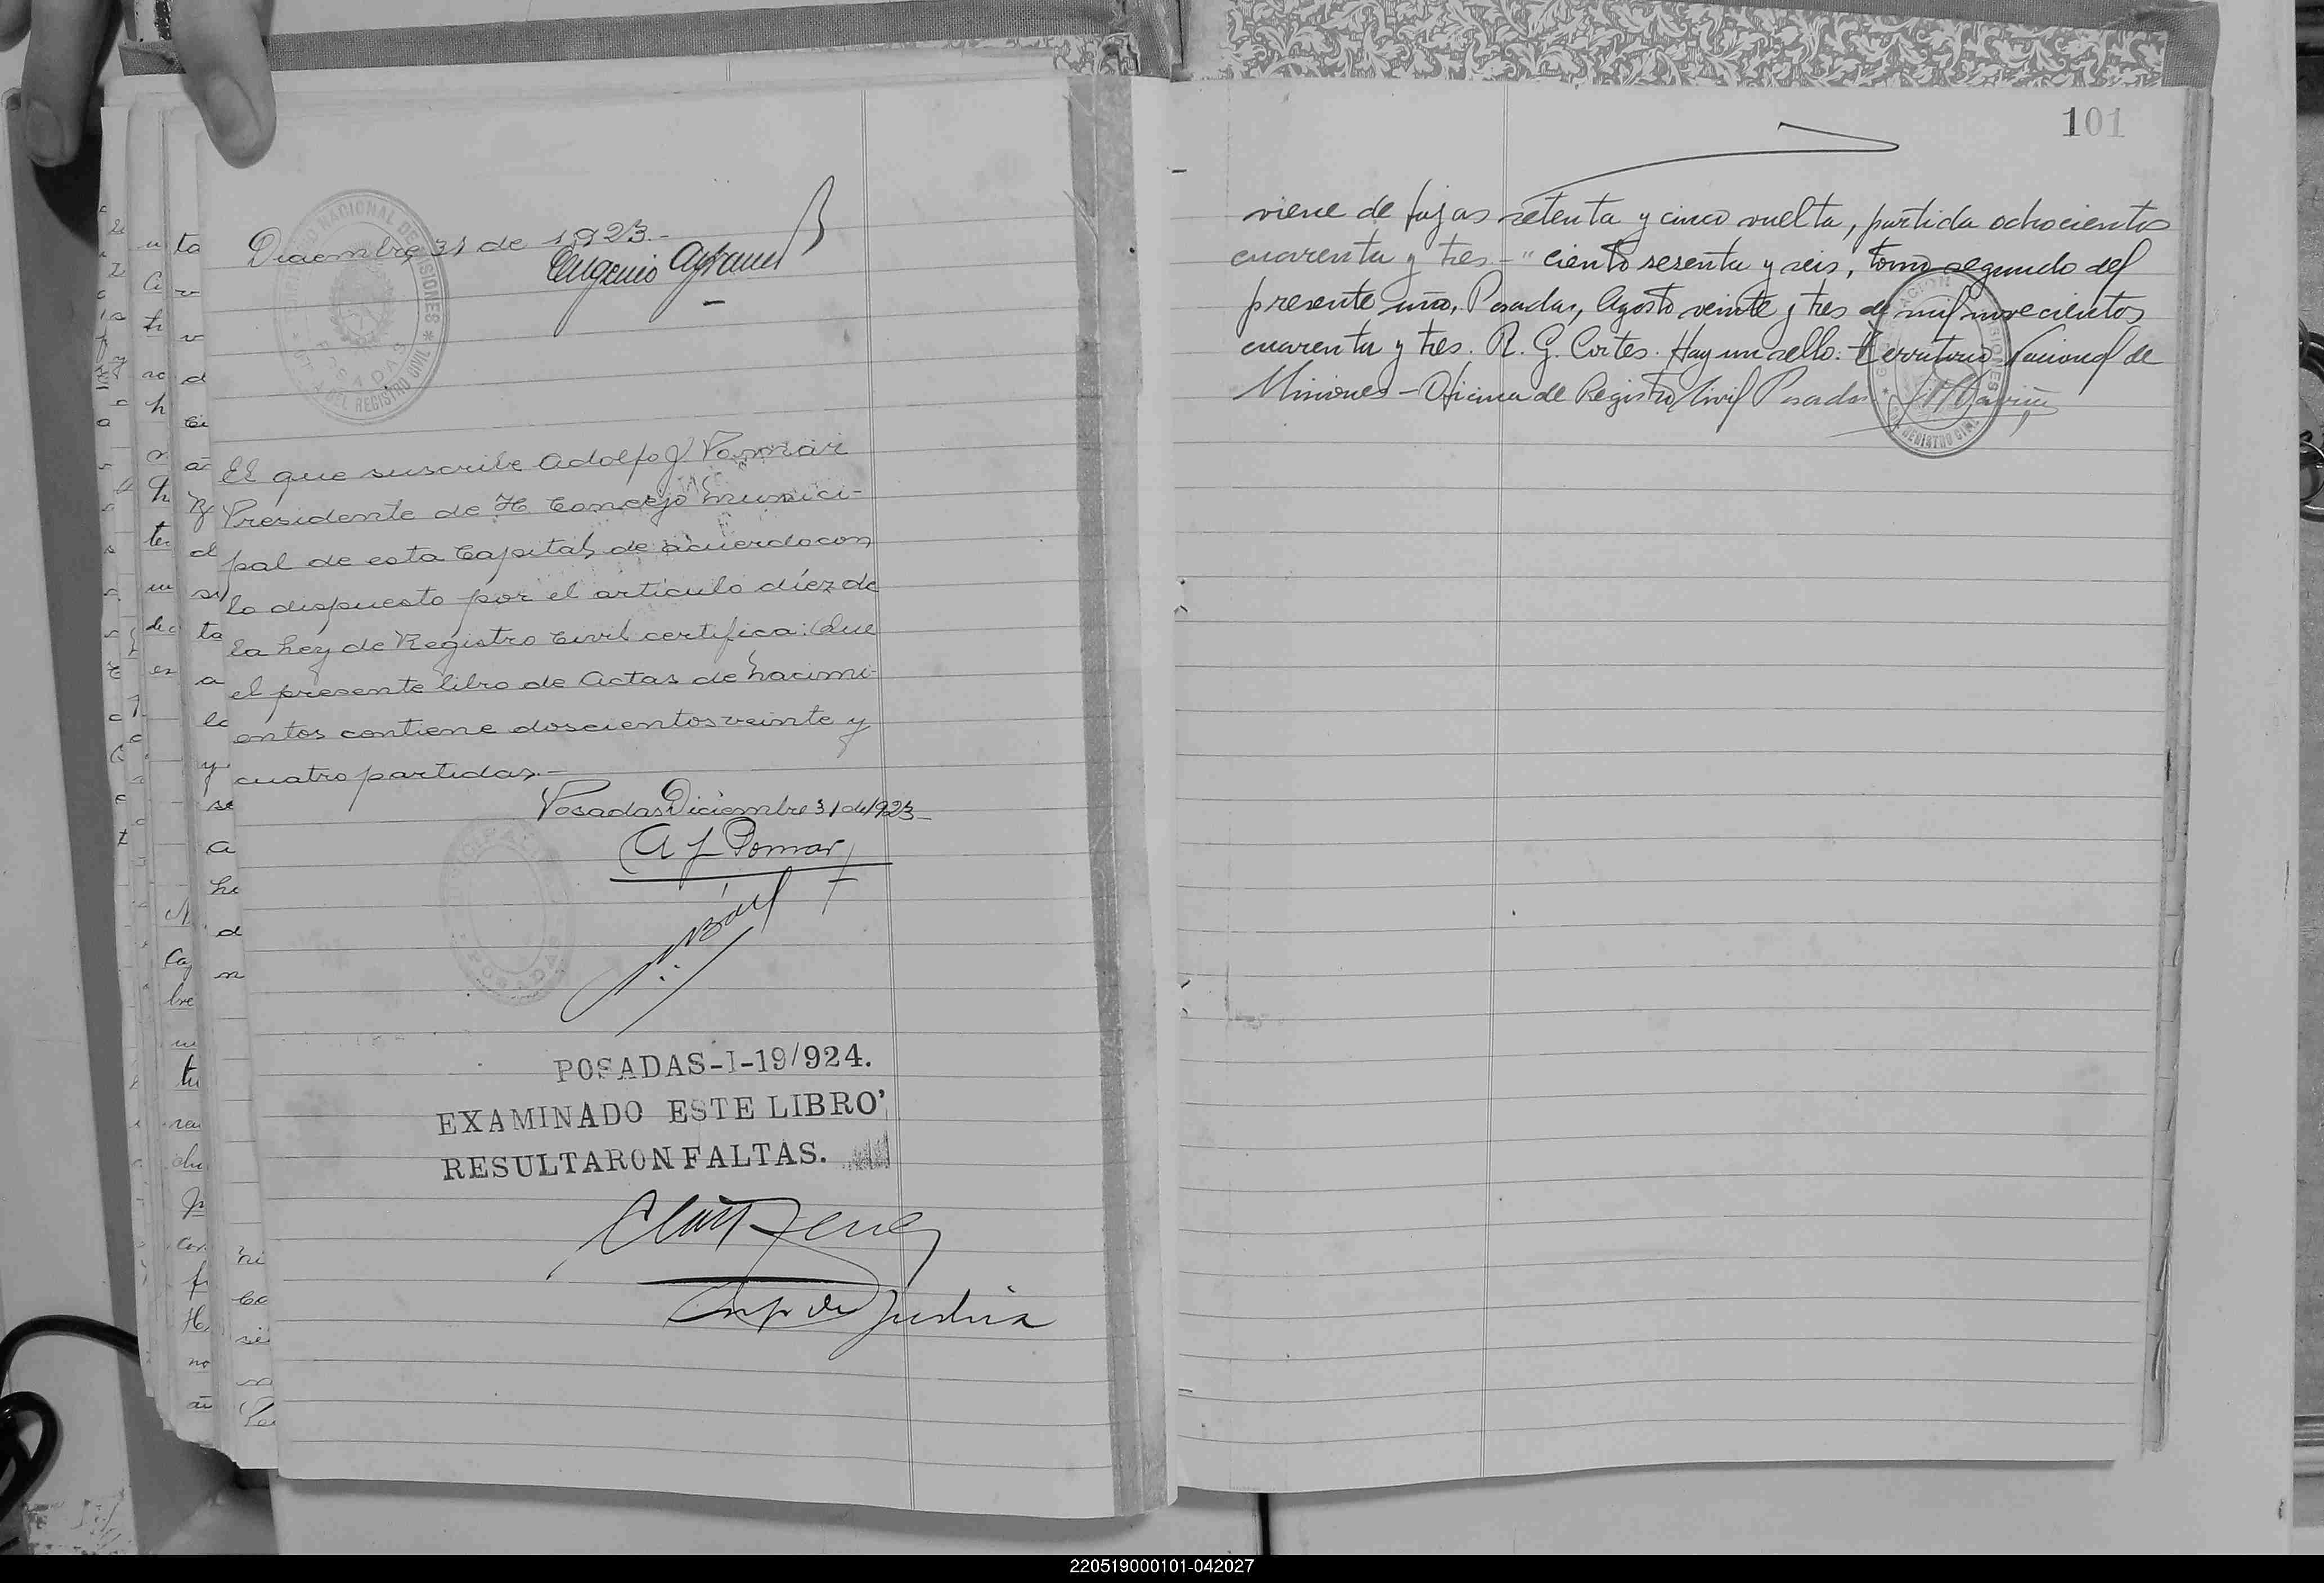 Diciembre 31 de 1923.-
Eugenio
El que suscribe Adolfo J Pomar
Presidente de H Concejo Munici-
pal de esta Capital, de acuerdo con
lo dispuesto por el artículo díez de
la Ley de Registro Civil certifica: Que
el presente libro de Actas de Nacimi-
entos contiene doscientos veinte y
cuatro partidas.-
Posadas Diciembre 31 de 1923-
A J Pomar
POSADAS-I-19/924.
EXAMINADO ESTE LIBRO
RESULTARON FALTAS.
Insp de Justicia
101
viene de fojas setenta y cinco vuelta, partida ochocientos
cuarenta y tres - " ciento sesenta y seis, tomo segundo del
presente año, Posadas, Agosto veinte y tres de mil novecientos
cuarenta y tres. R. G. Cortes. Hay un sello: Territorio Nacional de
Misiones - Oficina de Registro Civil Posadas
220519000101-042027